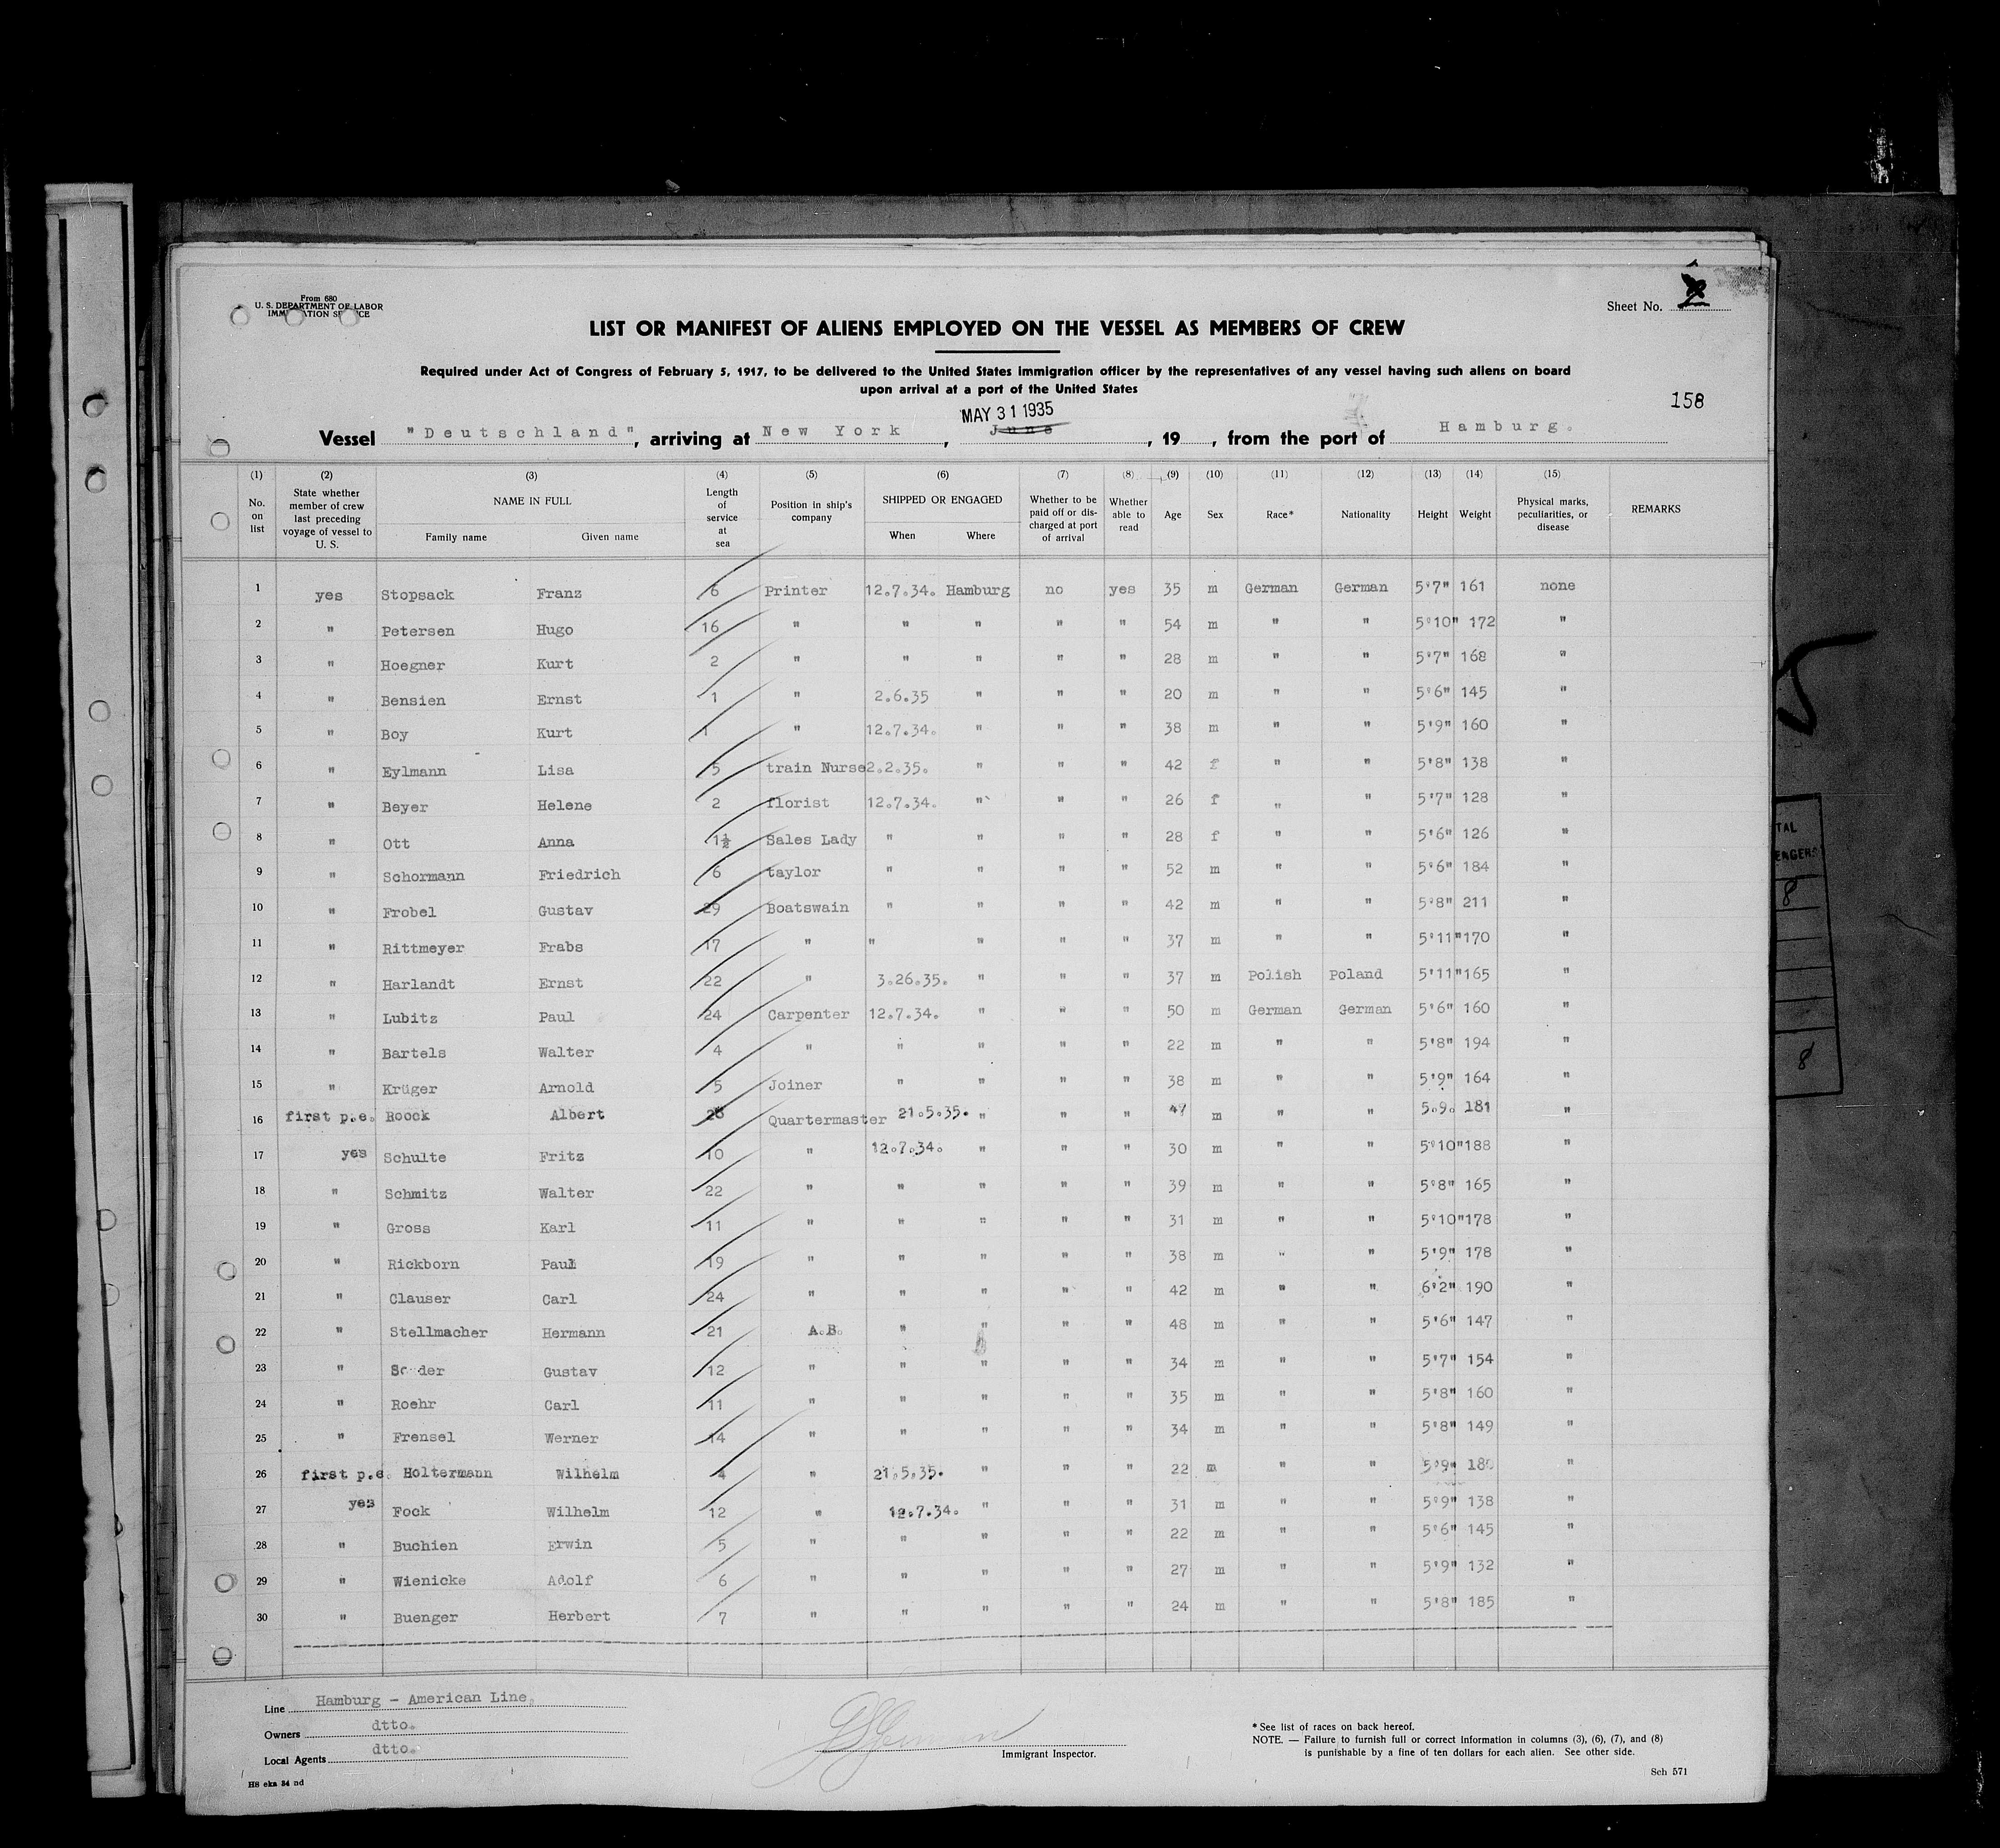 From 680
U. S. DEPARTMENT OF LABOR
IMMIGRATION SERVICE
Sheet No.
LIST OR MANIFEST OF ALIENS EMPLOYED ON THE VESSEL AS MEMBERS OF CREW
Required under Act of Congress of February 5, 1917, to be delivered to the United States immigration officer by the representatives of any vessel having such aliens on board
upon arrival at a port of the United States
158
MAY 31 1935
Vessel "Deutschland", arriving at New York, June, 19 , from the port of Hamburg.
(1) (2) (3) (4) (5) (6) (7) (8) (9) (10) (11) (12) (13) (14) (15)
No. on list State whether member of crew last preceding voyage of vessel to U. S. NAME IN FULL Family name Given name Length of service at sea Position in ship's company SHIPPED OR ENGAGED When Where Whether to be paid off or discharged at port of arrival Whether able to read Age Sex Race* Nationality Height Weight Physical marks, peculiarities, or disease REMARKS
1 yes Stopsack Franz 6 Printer 12.7.34. Hamburg no yes 35 m German German 5'7" 161 none
2 " Petersen Hugo 16 " " " " " 54 m " " 5'10" 172 "
3 " Hoegner Kurt 2 " " " " " 28 m " " 5'7" 168 "
4 " Bensien Ernst 1 " 2.6.35 " " " 20 m " " 5'6" 145 "
5 " Boy Kurt 1 " 12.7.34. " " " 38 m " " 5'9" 160 "
6 " Eylmann Lisa 5 train Nurse 2.2.35. " " " 42 f " " 5'8" 138 "
7 " Beyer Helene 2 florist 12.7.34. " " " 26 f " " 5'7" 128 "
8 " Ott Anna 1½ Sales Lady " " " " 28 f " " 5'6" 126 "
9 " Schormann Friedrich 6 taylor " " " " 52 m " " 5'6" 184 "
10 " Frobel Gustav 29 Boatswain " " " " 42 m " " 5'8" 211 "
11 " Rittmeyer Frabs 17 " " " " " 37 m " " 5'11" 170 "
12 " Harlandt Ernst 22 " 3.26.35. " " " 37 m Polish Poland 5'11" 165 "
13 " Lubitz Paul 24 Carpenter 12.7.34. " " " 50 m German German 5'6" 160 "
14 " Bartels Walter 4 " " " " " 22 m " " 5'8" 194 "
15 " Krüger Arnold 5 Joiner " " " " 38 m " " 5'9" 164 "
16 first p.e. Roock Albert Quartermaster 21.5.35. " " " 47 m " " 5.9. 181 "
17 yes Schulte Fritz 10 " 12.7.34. " " " 30 m " " 5'10" 188 "
18 " Schmitz Walter 22 " " " " " 39 m " " 5'8" 165 "
19 " Gross Karl 11 " " " " " 31 m " " 5'10" 178 "
20 " Rickborn Paul 19 " " " " " 38 m " " 5'9" 178 "
21 " Clauser Carl 24 " " " " " 42 m " " 6'2" 190 "
22 " Stellmacher Hermann 21 A.B. " " " " 48 m " " 5'6" 147 "
23 " Gustav 12 " " " " " 34 m " " 5'7" 154 "
24 " Roehr Carl 11 " " " " " 35 m " " 5'8" 160 "
25 " Frensel Werner 14 " " " " " 34 m " " 5'8" 149 "
26 first p.e. Holtermann Wilhelm 4 " 21.5.35. " " " 22 m " " 5'9" "
27 yes Fock Wilhelm 12 " 12.7.34. " " " 31 m " " 5'9" 138 "
28 " Buchien Erwin 5 " " " " " 22 m " " 5'6" 145 "
29 " Wienicke Adolf 6 " " " " " 27 m " " 5'9" 132 "
30 " Buenger Herbert 7 " " " " " 24 m " " 5'8" 185 "
Line Hamburg - American Line.
Owners dtto.
Local Agents dtto.
Immigrant Inspector.
* See list of races on back hereof.
NOTE. — Failure to furnish full or correct information in columns (3), (6), (7), and (8)
is punishable by a fine of ten dollars for each alien. See other side.
HS eka 34 nd
Sch 571
8
8